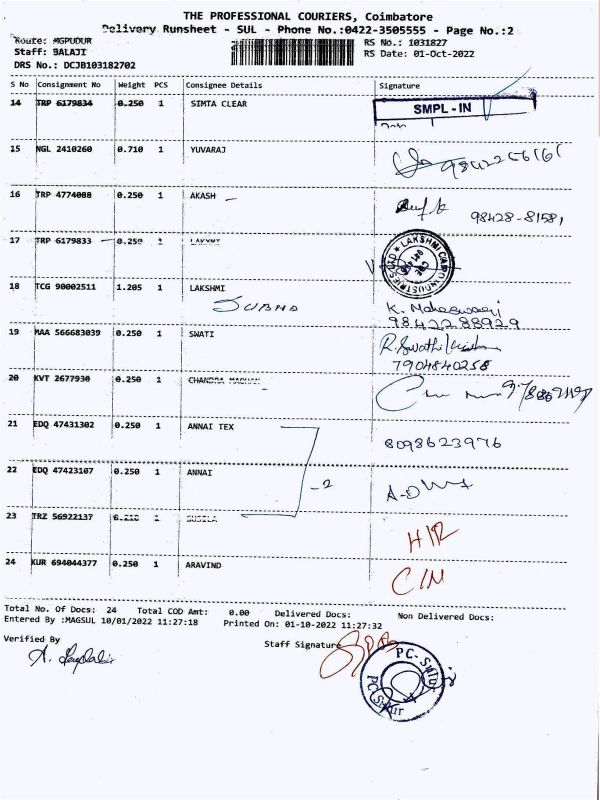 THE PROFESSIONAL COURIERS, Coimbatore
Delivery Runsheet - SUL - Phone No.:0422-3505555 - Page No.:2
Route: AGPUDUR
RS No.: 1031827
Staff: BALAJI
RS Date: 01-Oct-2022
DRS No.: DCJB103182702
S No Consignment No Weight PCS Consignee Details Signature
14 TRP 6179834 0.250 1 SIMTA CLEAR SMPL - IN
15 NGL 2410260 0.710 1 YUVARAJ
16 TRP 4774088 0.250 1 AKASH 98428-81581
17 TRP 6179833 0.250 1
18 TCG 90002511 1.205 1 LAKSHMI K. Maheswari
9842288929
19 MAA 566683039 0.250 1 SWATI R. Swathi
7904840258
20 KVT 2677930 0.250 1 CHANDRA
21 EDQ 47431302 0.250 1 ANNAI TEX 8098623976
22 EDQ 47423107 0.250 1 ANNAI -2
23 TRZ 56922137 1 SUSILA
24 KUR 694044377 0.250 1 ARAVIND
Total No. Of Docs: 24 Total COD Amt: 0.00 Delivered Docs: Non Delivered Docs:
Entered By :MAGSUL 10/01/2022 11:27:18 Printed On: 01-10-2022 11:27:32
Verified By Staff Signature
PC- Sulur
PC Sulur